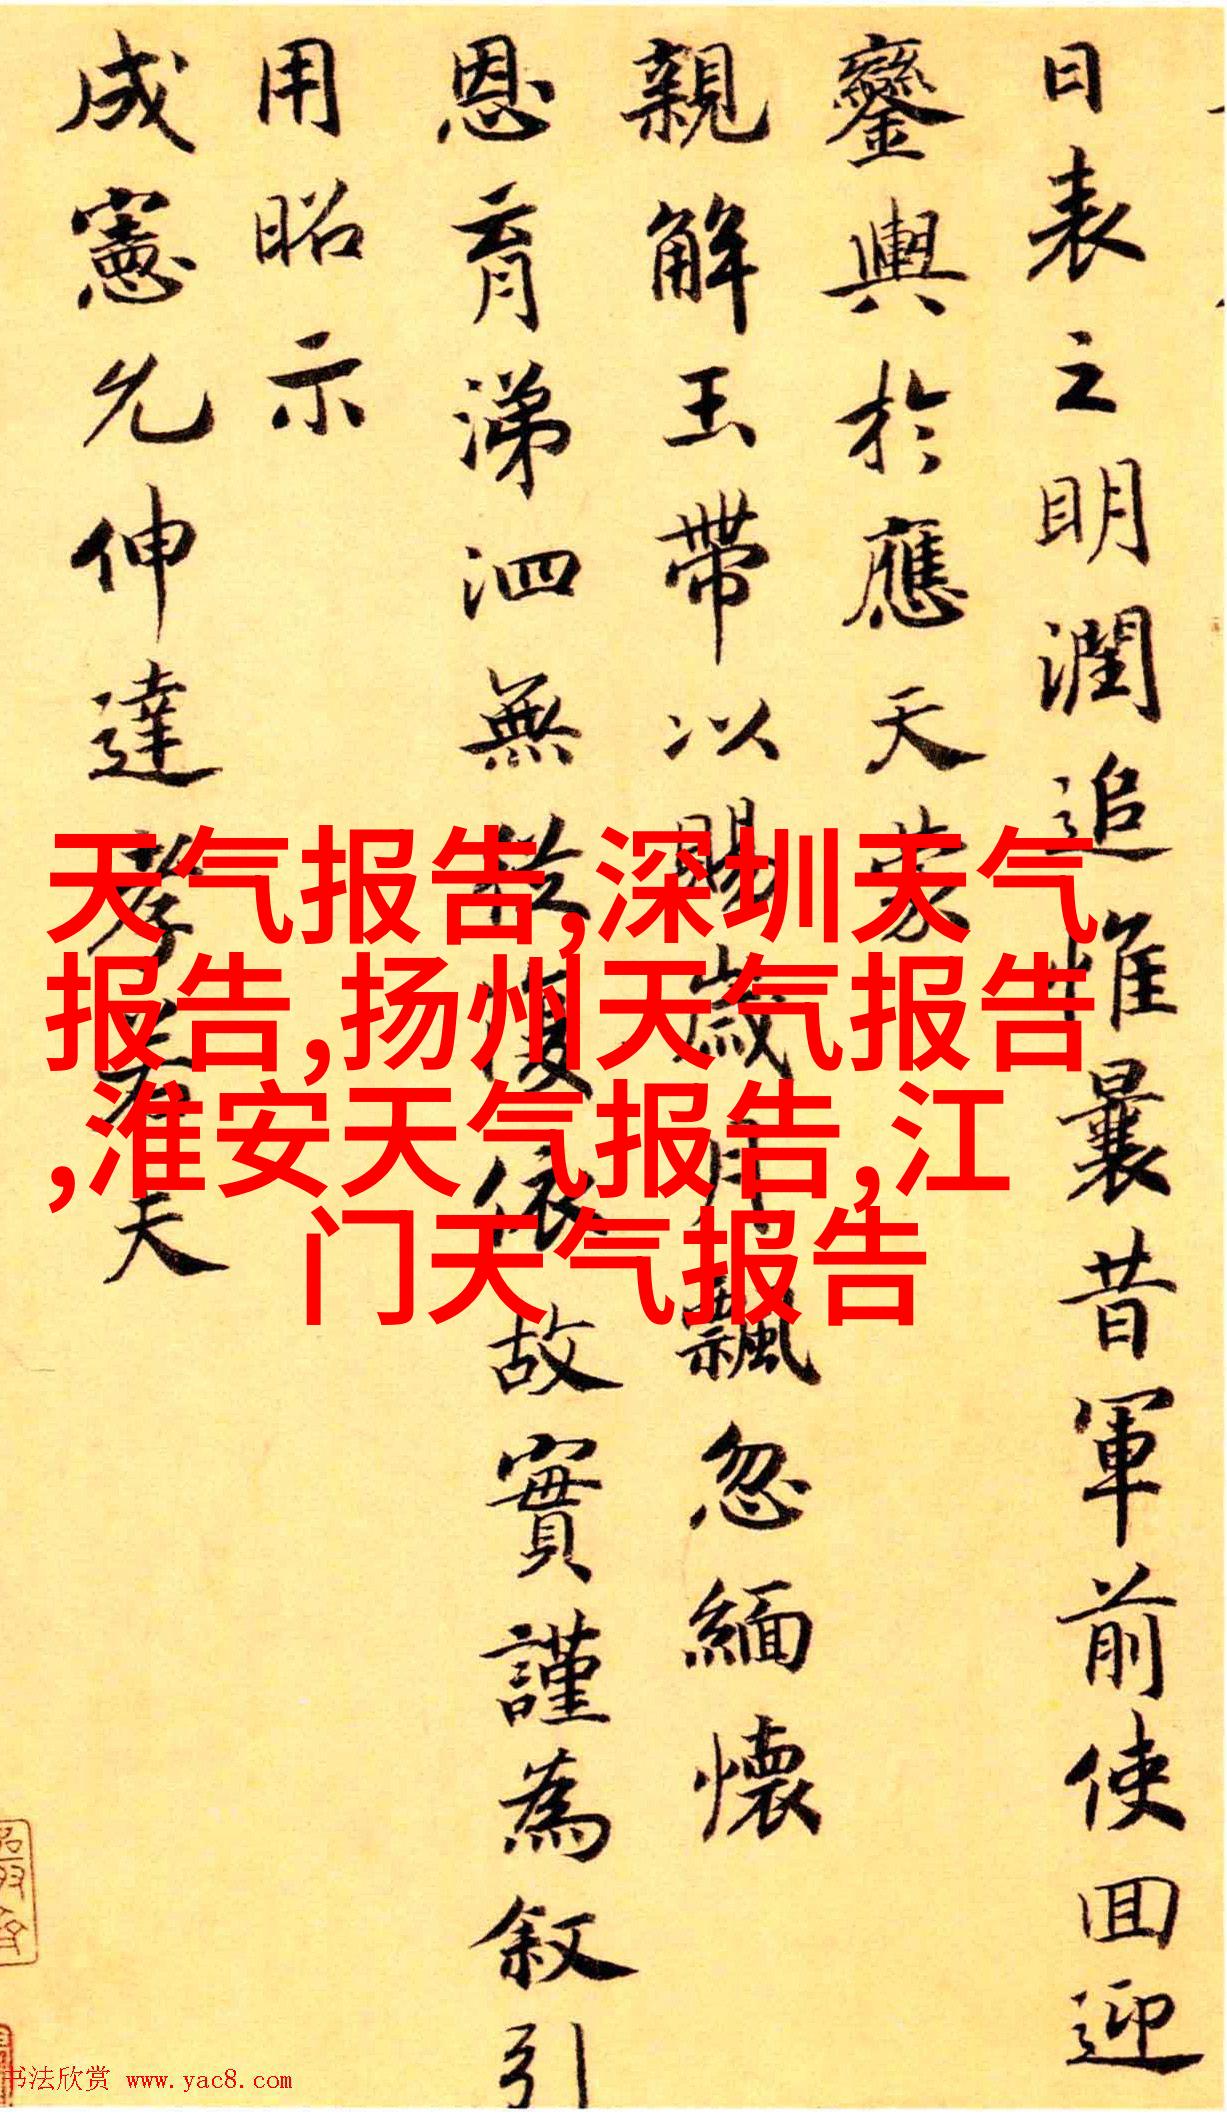 日表之明潤追惟曩昔軍前使回迎
鑾輿於應天蒙
親解玉帶以賜歲月飄忽緬懷
恩育涕泗無從復依故實謹為叙引
用昭示
成憲允伸達孝若天
天气报告,深圳天气
报告,扬州天气报告
,淮安天气报告,江
门天气报告
书法欣赏 www.yac8.com